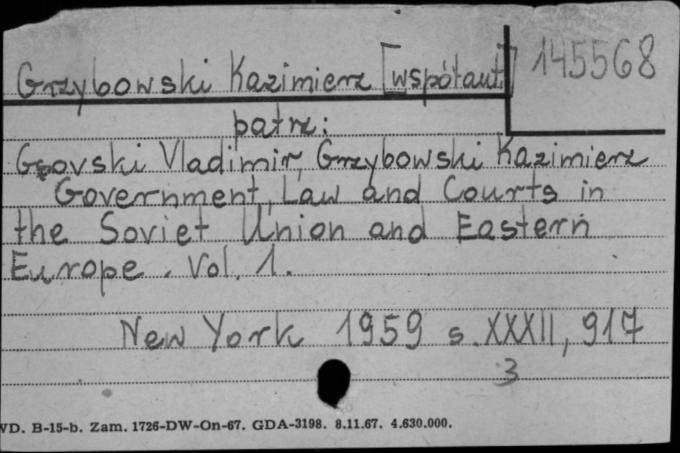 Grzybowski Kazimierz [współaut.] 145568
patrz:
Gsovski Vladimir, Grzybowski Kazimierz
Government, Law and Courts in
the Soviet Union and Eastern
Europe. Vol. 1.
New York 1959 s. XXXII, 917
3
WD. B-15-b. Zam. 1726-DW-On-67. GDA-3198. 8.11.67. 4.630.000.